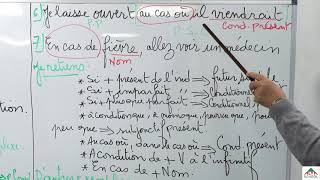 6) Je laisse ouvert au cas où il viendrait
Cond. présent
7) En cas de fièvre, allez voir un médecin
Nom
Je retiens:
* Si + présent de l'ind → futur simple
* Si + imparfait → conditionnel
* Si + plus que parfait → conditionnel
* à condition que, à moins que, pourvu que, pour
peu que → subjonctif présent.
* Au cas où, dans le cas où → Cond présent
* A condition de + V à l'infinitif
* En cas de + Nom.